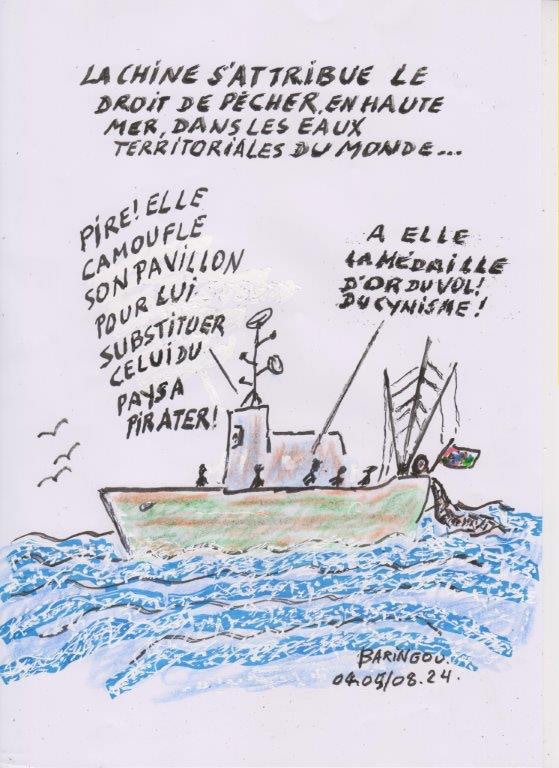 LA CHINE S'ATTRIBUE LE
DROIT DE PÊCHER, EN HAUTE
MER, DANS LES EAUX
TERRITORIALES DU MONDE...
PIRE! ELLE
CAMOUFLE
SON PAVILLON
POUR LUI
SUBSTITUER
CELUI DU
PAYS A
PIRATER!
A ELLE
LA MÉDAILLE
D'OR DU VOL!
DU CYNISME!
BARINGOU.
04.05/08.24.